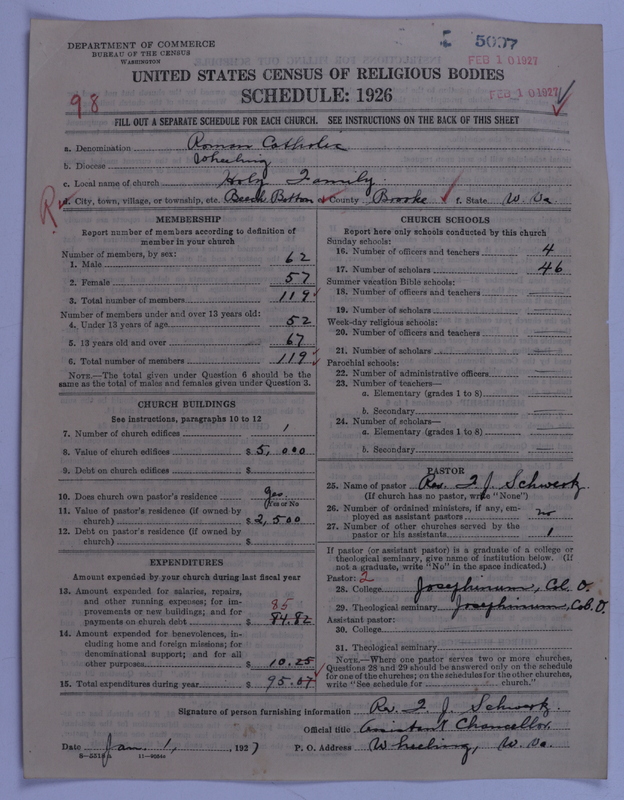 DEPARTMENT OF COMMERCE
BUREAU OF THE CENSUS
WASHINGTON
5007
FEB 10 1927
FEB 10 1927
UNITED STATES CENSUS OF RELIGIOUS BODIES
SCHEDULE: 1926
98
FILL OUT A SEPARATE SCHEDULE FOR EACH CHURCH. SEE INSTRUCTIONS ON THE BACK OF THIS SHEET
a. Denomination Roman Catholic
b. Diocese Wheeling
c. Local name of church Holy Family
R
d. City, town, village, or township, etc. Beech Bottom e. County Brooke f. State W. Va.
MEMBERSHIP
Report number of members according to definition of
member in your church
Number of members, by sex:
1. Male 62
2. Female 57
3. Total number of members 119
Number of members under and over 13 years old:
4. Under 13 years of age 52
5. 13 years old and over 67
6. Total number of members 119
NOTE.—The total given under Question 6 should be the
same as the total of males and females given under Question 3.
CHURCH BUILDINGS
See instructions, paragraphs 10 to 12
7. Number of church edifices 1
8. Value of church edifices $ 5,000
9. Debt on church edifices $
10. Does church own pastor's residence Yes.
(Yes or No)
11. Value of pastor's residence (if owned by
church) $ 2,500
12. Debt on pastor's residence (if owned by
church) $
EXPENDITURES
Amount expended by your church during last fiscal year
13. Amount expended for salaries, repairs,
and other running expenses; for im-
provements or new buildings; and for
85
payments on church debt $ 84.82
14. Amount expended for benevolences, in-
cluding home and foreign missions; for
denominational support; and for all
other purposes $ 10.25
15. Total expenditures during year $ 95.07
CHURCH SCHOOLS
Report here only schools conducted by this church
Sunday schools:
16. Number of officers and teachers 4
17. Number of scholars 46
Summer vacation Bible schools:
18. Number of officers and teachers
19. Number of scholars
Week-day religious schools:
20. Number of officers and teachers
21. Number of scholars
Parochial schools:
22. Number of administrative officers
23. Number of teachers—
a. Elementary (grades 1 to 8)
b. Secondary
24. Number of scholars—
a. Elementary (grades 1 to 8)
b. Secondary
PASTOR
25. Name of pastor Rev. F. J. Schwertz
(If church has no pastor, write "None")
26. Number of ordained ministers, if any, em-
ployed as assistant pastors no
27. Number of other churches served by the
pastor or his assistants 1
If pastor (or assistant pastor) is a graduate of a college or
theological seminary, give name of institution below. (If
not a graduate, write "No" in the space indicated.)
Pastor: 2
28. College Josephinum, Col. O.
29. Theological seminary Josephinum, Col. O.
Assistant pastor:
30. College
31. Theological seminary
NOTE.—Where one pastor serves two or more churches,
Questions 28 and 29 should be answered only on the schedule
for one of the churches; on the schedules for the other churches,
write "See schedule for church."
Signature of person furnishing information Rev. F. J. Schwertz
Official title Assistant Chancellor.
Date Jan. 1, , 1927 P. O. Address Wheeling, W. Va.